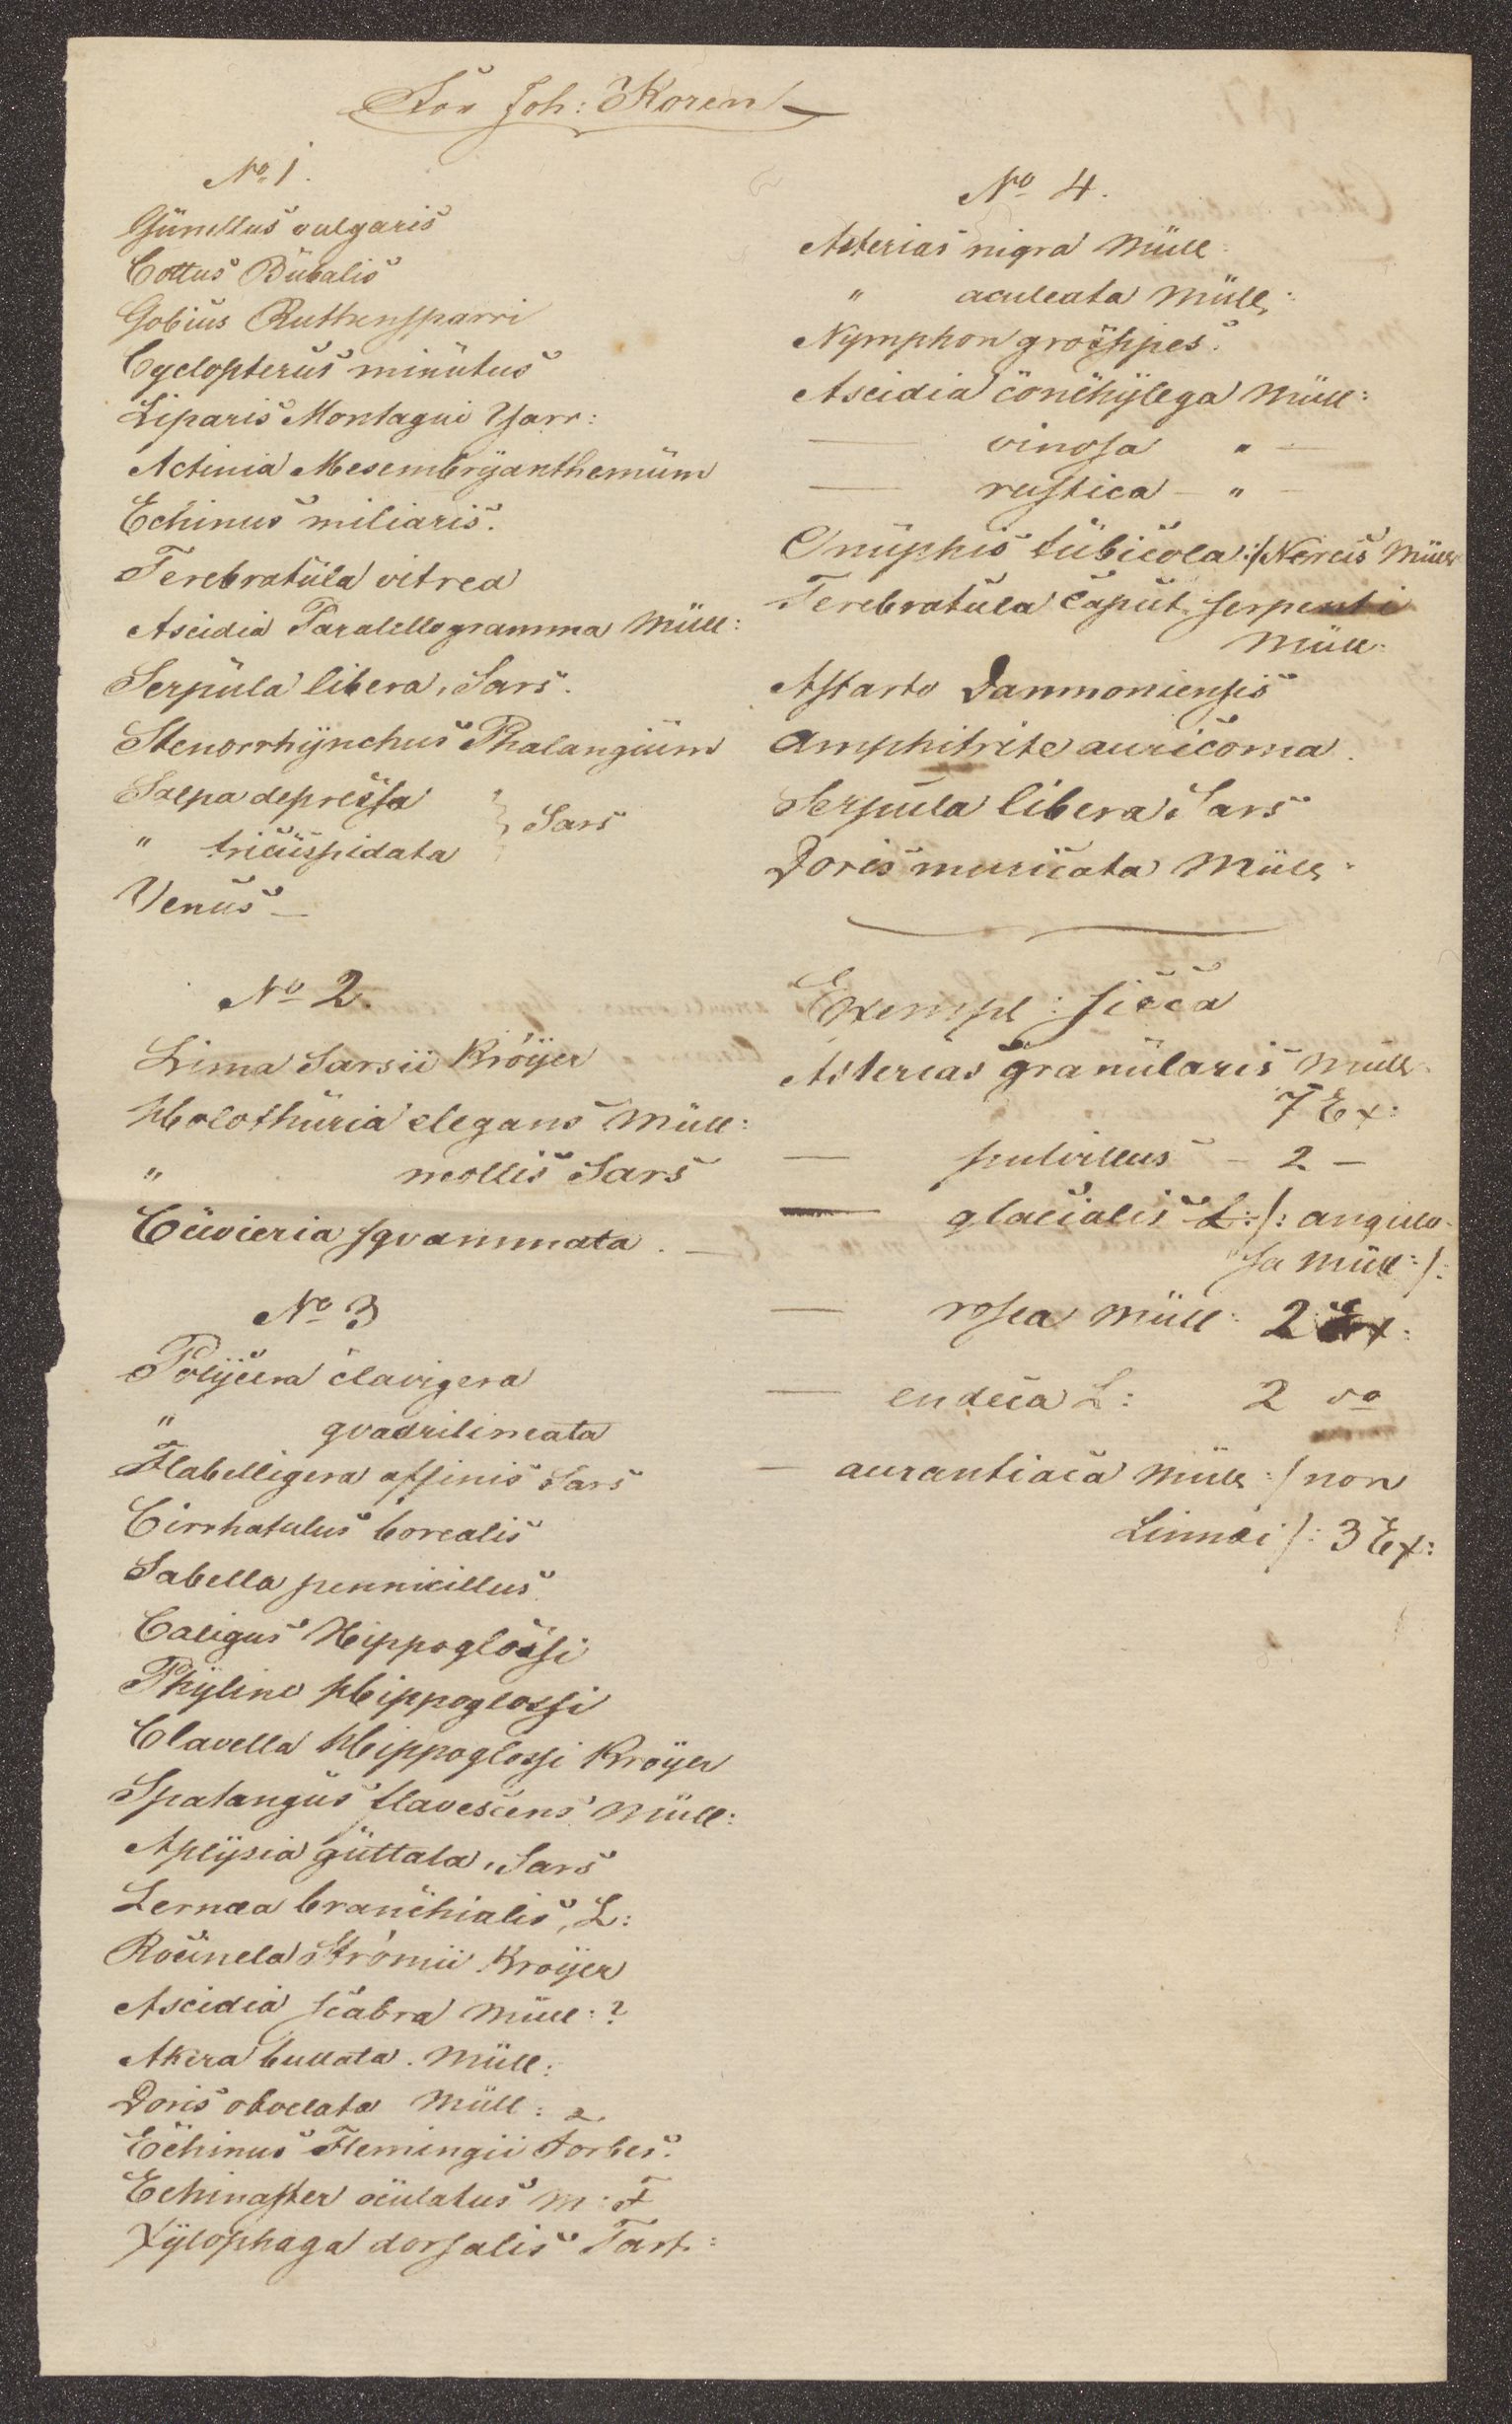 För Joh: Koren
No. 1.
Gunellus vulgaris
Cottus Bubalis
Gobius Ruthensparri
Cyclopterus minutus
Liparis Montagui Yarr:
Actinia Mesembryanthemum
Echinus miliaris.
Terebratula vitrea
Ascidia Paralellogramma Müll:
Serpula libera, Sars.
Stenorrhynchus Phalangium
Salpa depressa
" tricuspidata } Sars
Venus —
No 2.
Lima Sarsii Kröyer
Holothuria elegans Müll:
" mollis Sars
Cuvieria sqvammata. —
No 3
Polycera clavigera
" qvadrilineata
Flabelligera affinis Sars
Cirrhatulus borealis
Sabella pennicillus
Caligus Hippoglossi
Phyline Hippoglossi
Clavella Hippoglossi Kröyer
Spatangus flavescens Müll:
Aplysia guttata, Sars
Lernæa branchialis, L:
Rocinela Strömii Kröyer
Ascidia scabra Müll: ?
Akera bullata. Müll:
Doris obvelata Müll:
Echinus Flemingii Forbes.
Echinaster oculatus M: T
Xylophaga dorsalis Turt:
No 4.
Asterias nigra Müll:
" aculeata Müll:
Nymphon grossipes.
Ascidia conchylega Müll:
— vinosa " —
— rustica — " —
Onuphis tubicola :/ Nereis Müll
Terebratula caput serpenti
Müll:
Astarte Damnoniensis
Amphitrite auricoma.
Serpula libera Sars
Doris muricata Müll:
Exempl: sicca
Asterias granularis Müll
7 Ex:
— pulvillus — 2 —
— glacialis L: /: angulo-
sa Müll: /:
— rosea Müll: 2 Ex:
— endeca L: 2 do
— aurantiaca Müll: / non
Linnæi /: 3 Ex: